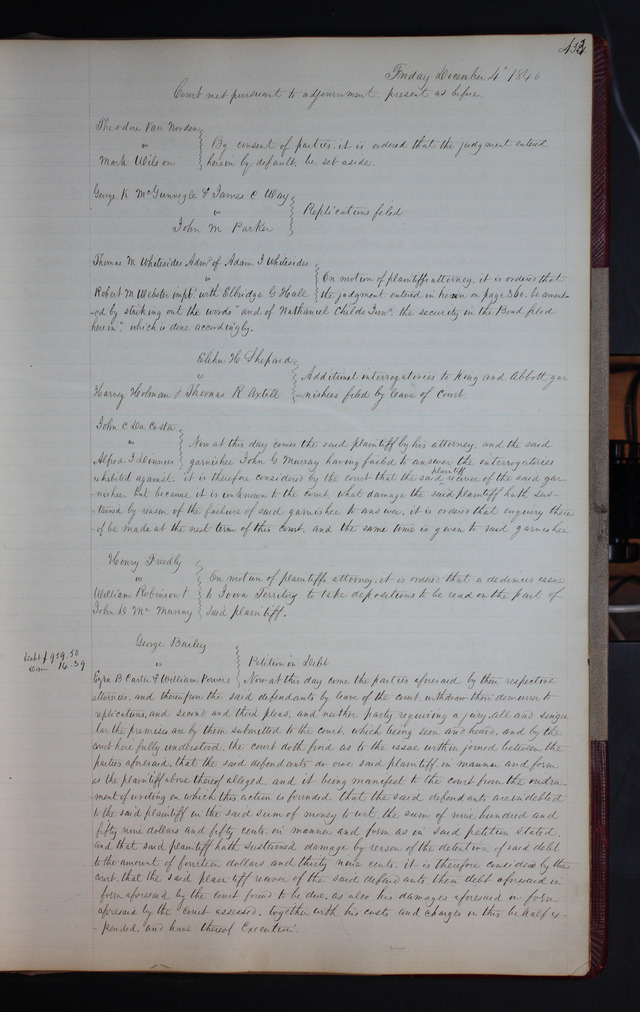 433
Friday December 4th 1840
Court met pursuant to adjournment. present as before.
Theodore Van Norden
vs
Mark Wilson
By consent of parties. it is ordered that the judgment entered
herein by default. be set aside.
George K McGunnegle & James C Way
vs
John M Parker
Replications filed
Thomas M Whitesides Admr of Adam I Whitesides
vs
Robert M Webster impd. with Elbridge G Hall
On motion of plaintiffs attorney. it is ordered that
the judgment entered in hereon on page 360. be amend
-ed by striking out the words "and of Nathaniel Childs Junr. the security in the Bond filed
herein". which is done accordingly.
Elihu H Shepard
vs
Harvey Holman & Thomas R Axtell
Additional interrogatories to King and Abbott gar
-nishees filed by leave of court.
John C Da Costa
vs
Alfred J Dinnies
Now at this day comes the said plaintiff by his attorney. and the said
garnishee John G Murray having failed to answer the interrogatories
exhibited against. it is therefore considered by the court that the said plaintiff recover of the said gar
nishee. but because it is unknown to the court, what damage the said plaintiff hath sus-
tained by reason of the failure of said garnishee to answer. it is ordered that enquiry there
of be made at the next term of this court. and the same time is given to said garnishee
Henry Freedly
vs
William Robinson &
John D McMurray
On motion of plaintiffs attorney. it is ordered that a dedimus issue
to Iowa Territory to take depositions to be read on the part of
said plaintiff.
George Bailey
vs
Ezra B Carter & William Powers
Debt $959.50
Dam 14.39
Petition in Debt
Now at this day come the parties aforesaid by their respective
attornies. and thereupon the said defendants by leave of the court. withdraw their demurrer to
replications, and second and third pleas. and neither party requiring a jury. all and singu
lar the premises are by them submitted to the court. which being seen and heard. and by the
court here fully understood, the court doth find as to the issue within joined between the
parties aforesaid, that the said defendants do owe said plaintiff in manner and form
as the plaintiff above thereof alleged. and it being manifest to the court from the instru-
ment of writing on which this action is founded that the said defendants are indebted
to the said plaintiff in the said sum of money to wit, the sum of nine hundred and
fifty nine dollars and fifty cents. in manner and form as in said petition stated.
and that said plaintiff hath sustained damage by reason of the detention of said debt
to the amount of fourteen dollars and thirty nine cents. it is therefore considered by the
court. that the said plaintiff recover of the said defendants. their debt aforesaid in
form aforesaid by the court found to be due. as also his damages aforesaid in form
aforesaid by the court assessed. together with his costs and charges in this behalf ex-
-pended. and have thereof Execution.